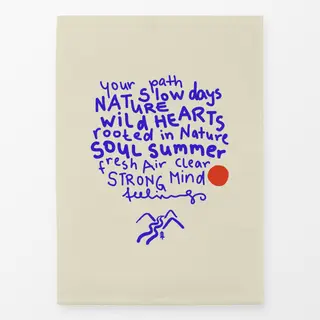 your path
NATURE slow days
wild HEARTS
rooted in Nature
SOUL summer
fresh Air clear
STRONG Mind
feelings